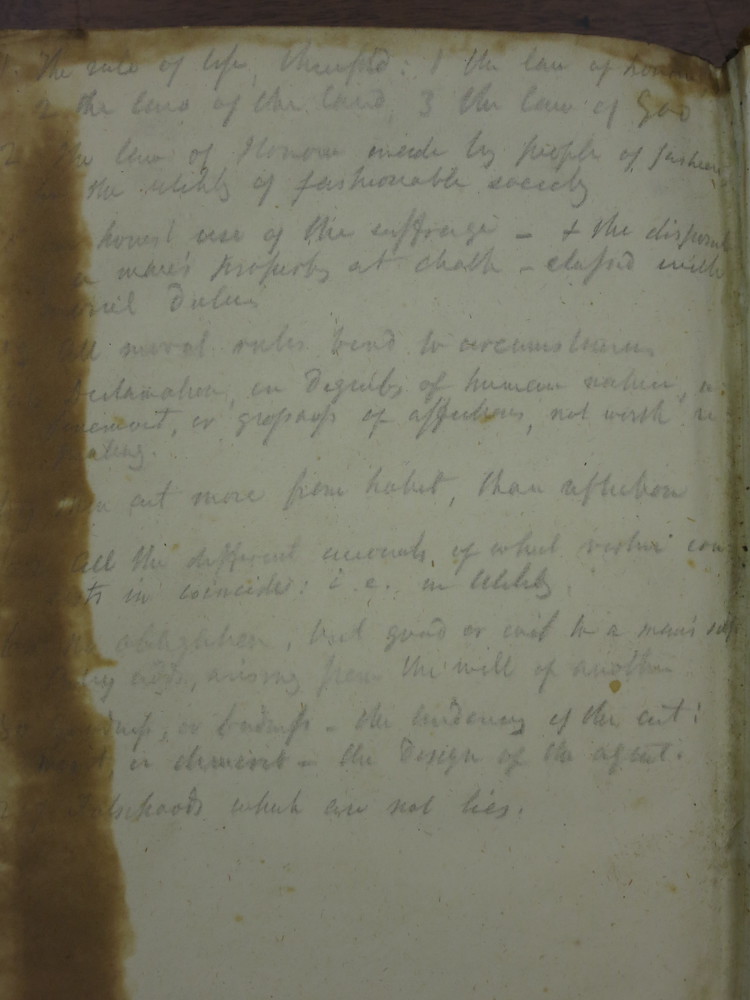 1. The rule of life, threefold: 1 the law of honour
2 the law of the land, 3 the law of God
2 The law of Honour made by people of fashion
the utility of fashionable society
honest use of the suffrage - & the disposal
a man's property at death - classed with
Duties
All moral rules bend to circumstances
Declamation, on Dignity of human nature,
or grossness of affections, not worth re
act more from habit, than reflection
All the different accounts, of what virtue con
sists in coincide: i.e. in Utility.
No obligation, but good or evil to a man's self
by acts, arising from the will of another
Goodness, or badness - the tendency of the act:
Merit, or demerit - the Design of the agent.
Falshoods which are not lies.